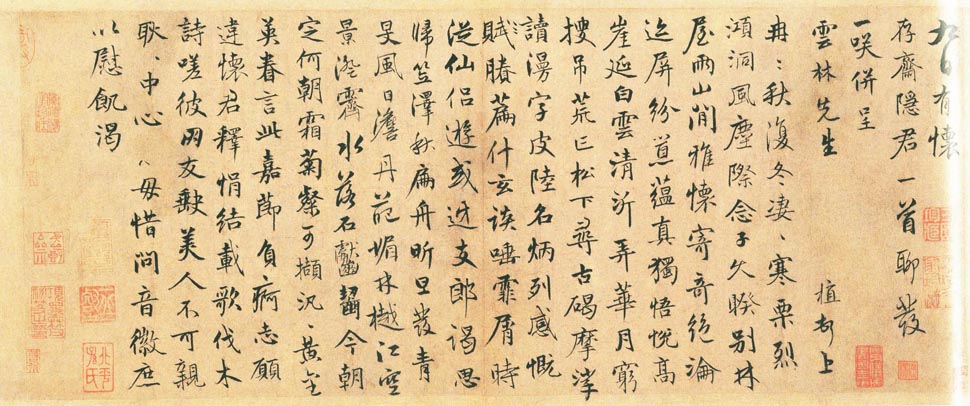 九日有懷
存齋隱君一首聊發
一咲併呈
雲林先生 植上
冉〻秋復冬淒〻寒栗烈
澒洞風塵際念子久睽別林
屋兩山間雅懷寄奇絕淪
屏紛蘊真獨悟悅高
崖延白雲清泝弄華月窮
搜吊荒亡松下尋古碣摩挲
讀漫字皮陸名炳列感慨
賦勝篇什玄談唾霏屑時
從仙侶遊或迓支郎謁思
歸笠澤秋扁舟昕旦發青
旻風日澹丹葩媚林樾江空
景澄霽水落石巘齧今朝
定何朝霜菊粲可擷況〻黃金
英眷言此嘉節負痾志願
違懷君釋悁結載歌伐木
詩嗟彼朋友缺美人不可親
耿〻中心〻毋惜問音徽庶
以慰飢渴